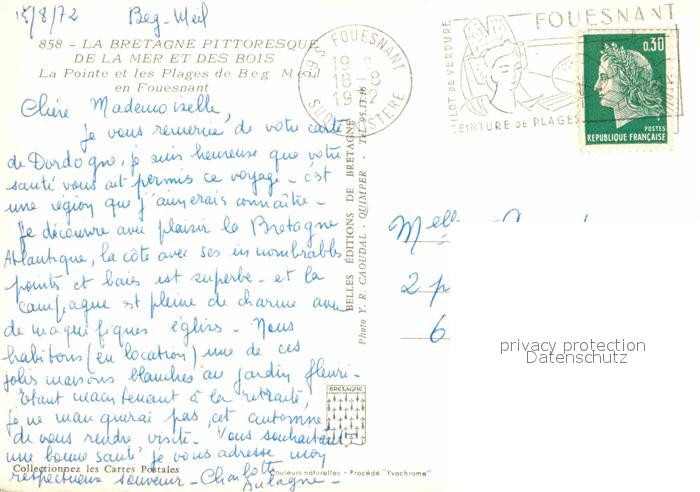 15/8/72 Beg-Meil
858 - LA BRETAGNE PITTORESQUE
DE LA MER ET DES BOIS
La Pointe et les Plages de Beg Meil
en Fouesnant
Chère Mademoiselle,
Je vous remercie de votre carte
de Dordogne, je suis heureuse que votre
santé vous ait permis ce voyage - c'est
une région que j'aimerais connaître -
Je découvre avec plaisir la Bretagne
Atlantique, la côte avec ses innombrables
points et baies est superbe - et la
campagne est pleine de charme avec
de magnifiques églises - Nous
habitons (en location) une de ces
jolis maisons blanches au jardin fleuri -
Etant maintenant à la retraite,
je ne manquerai pas, cet automne,
de vous rendre visite - Vous souhaitant
une bonne santé je vous adresse mon
respectueux souvenir - Charlotte
Collectionnez les Cartes Postales
Couleurs naturelles - Procédé "Yvochrome"
BRETAGNE
BELLES ÉDITIONS DE BRETAGNE
Photo Y. R. CAOUDAL - QUIMPER - TEL. 95.13.16
29 S. FOUESNANT
SUD FINISTERE
FOUESNANT
ILOT DE VERDURE
CEINTURE DE PLAGES
0,30
POSTES
REPUBLIQUE FRANÇAISE
Melle
2
6
privacy protection
Datenschutz